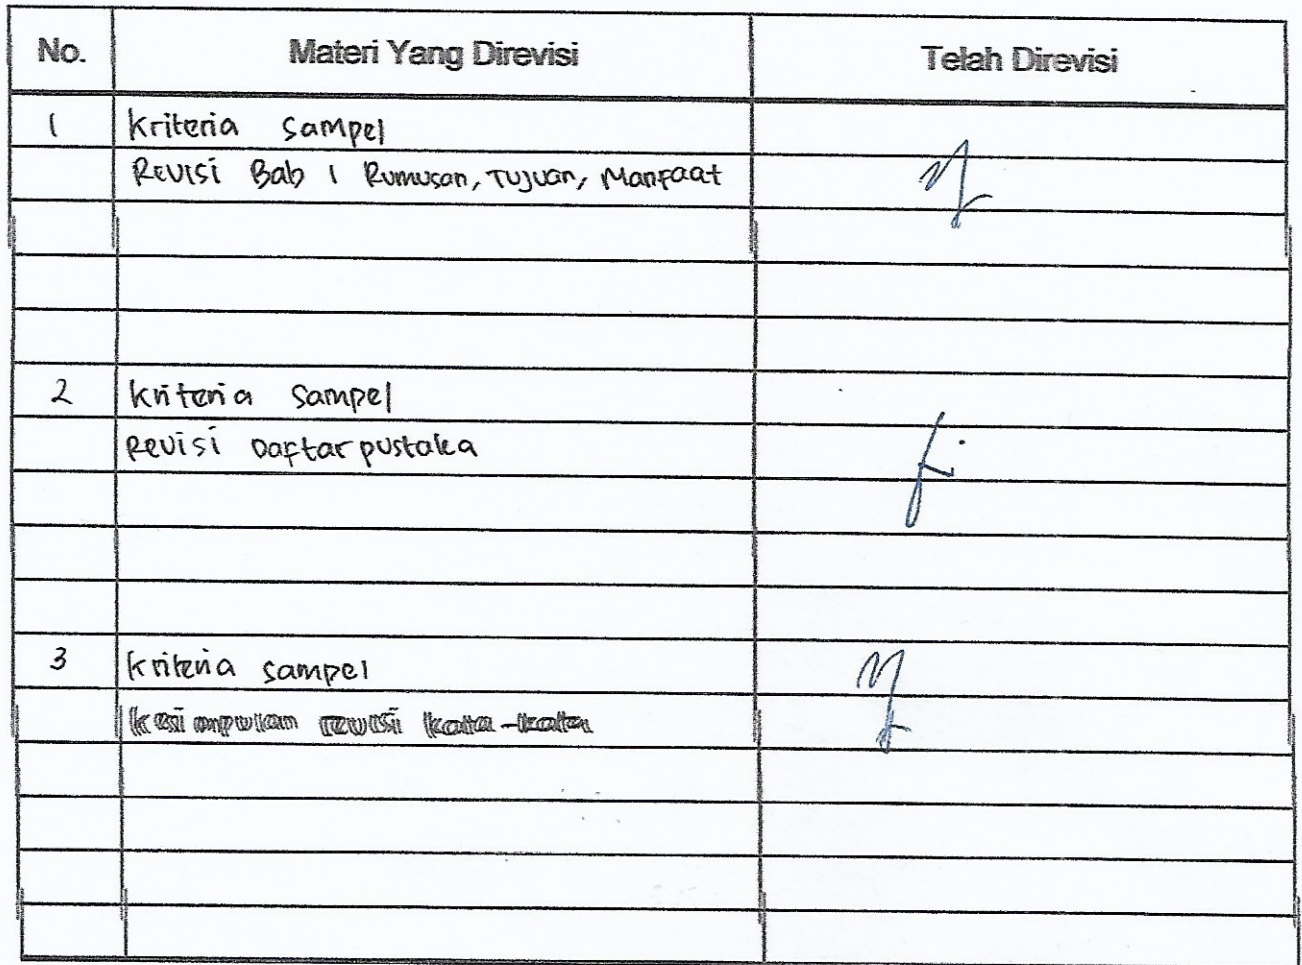 No. Materi Yang Direvisi Telah Direvisi
1 Kriteria Sampel
Revisi Bab 1 Rumusan, Tujuan, Manfaat
2 Kriteria Sampel
Revisi Daftar pustaka
3 Kriteria Sampel
Kesimpulan revisi kata-kata